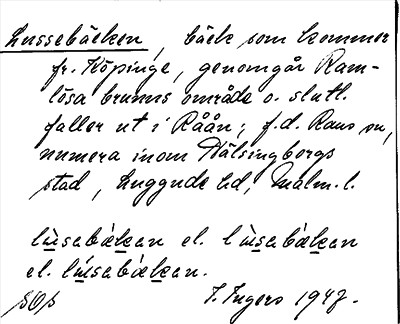 Lussebäcken, bäck som kommer
fr. Köpinge, genomgår Ram-
lösa brunns område o. slutl.
faller ut i Råån; f.d. Raus sn,
numera inom Hälsingborgs
stad, Luggude hd, Malm. l.
lùsabǽkan el. lùsabǽkan
el. lúsabǽkan.
SOS I. Ingers 1947.